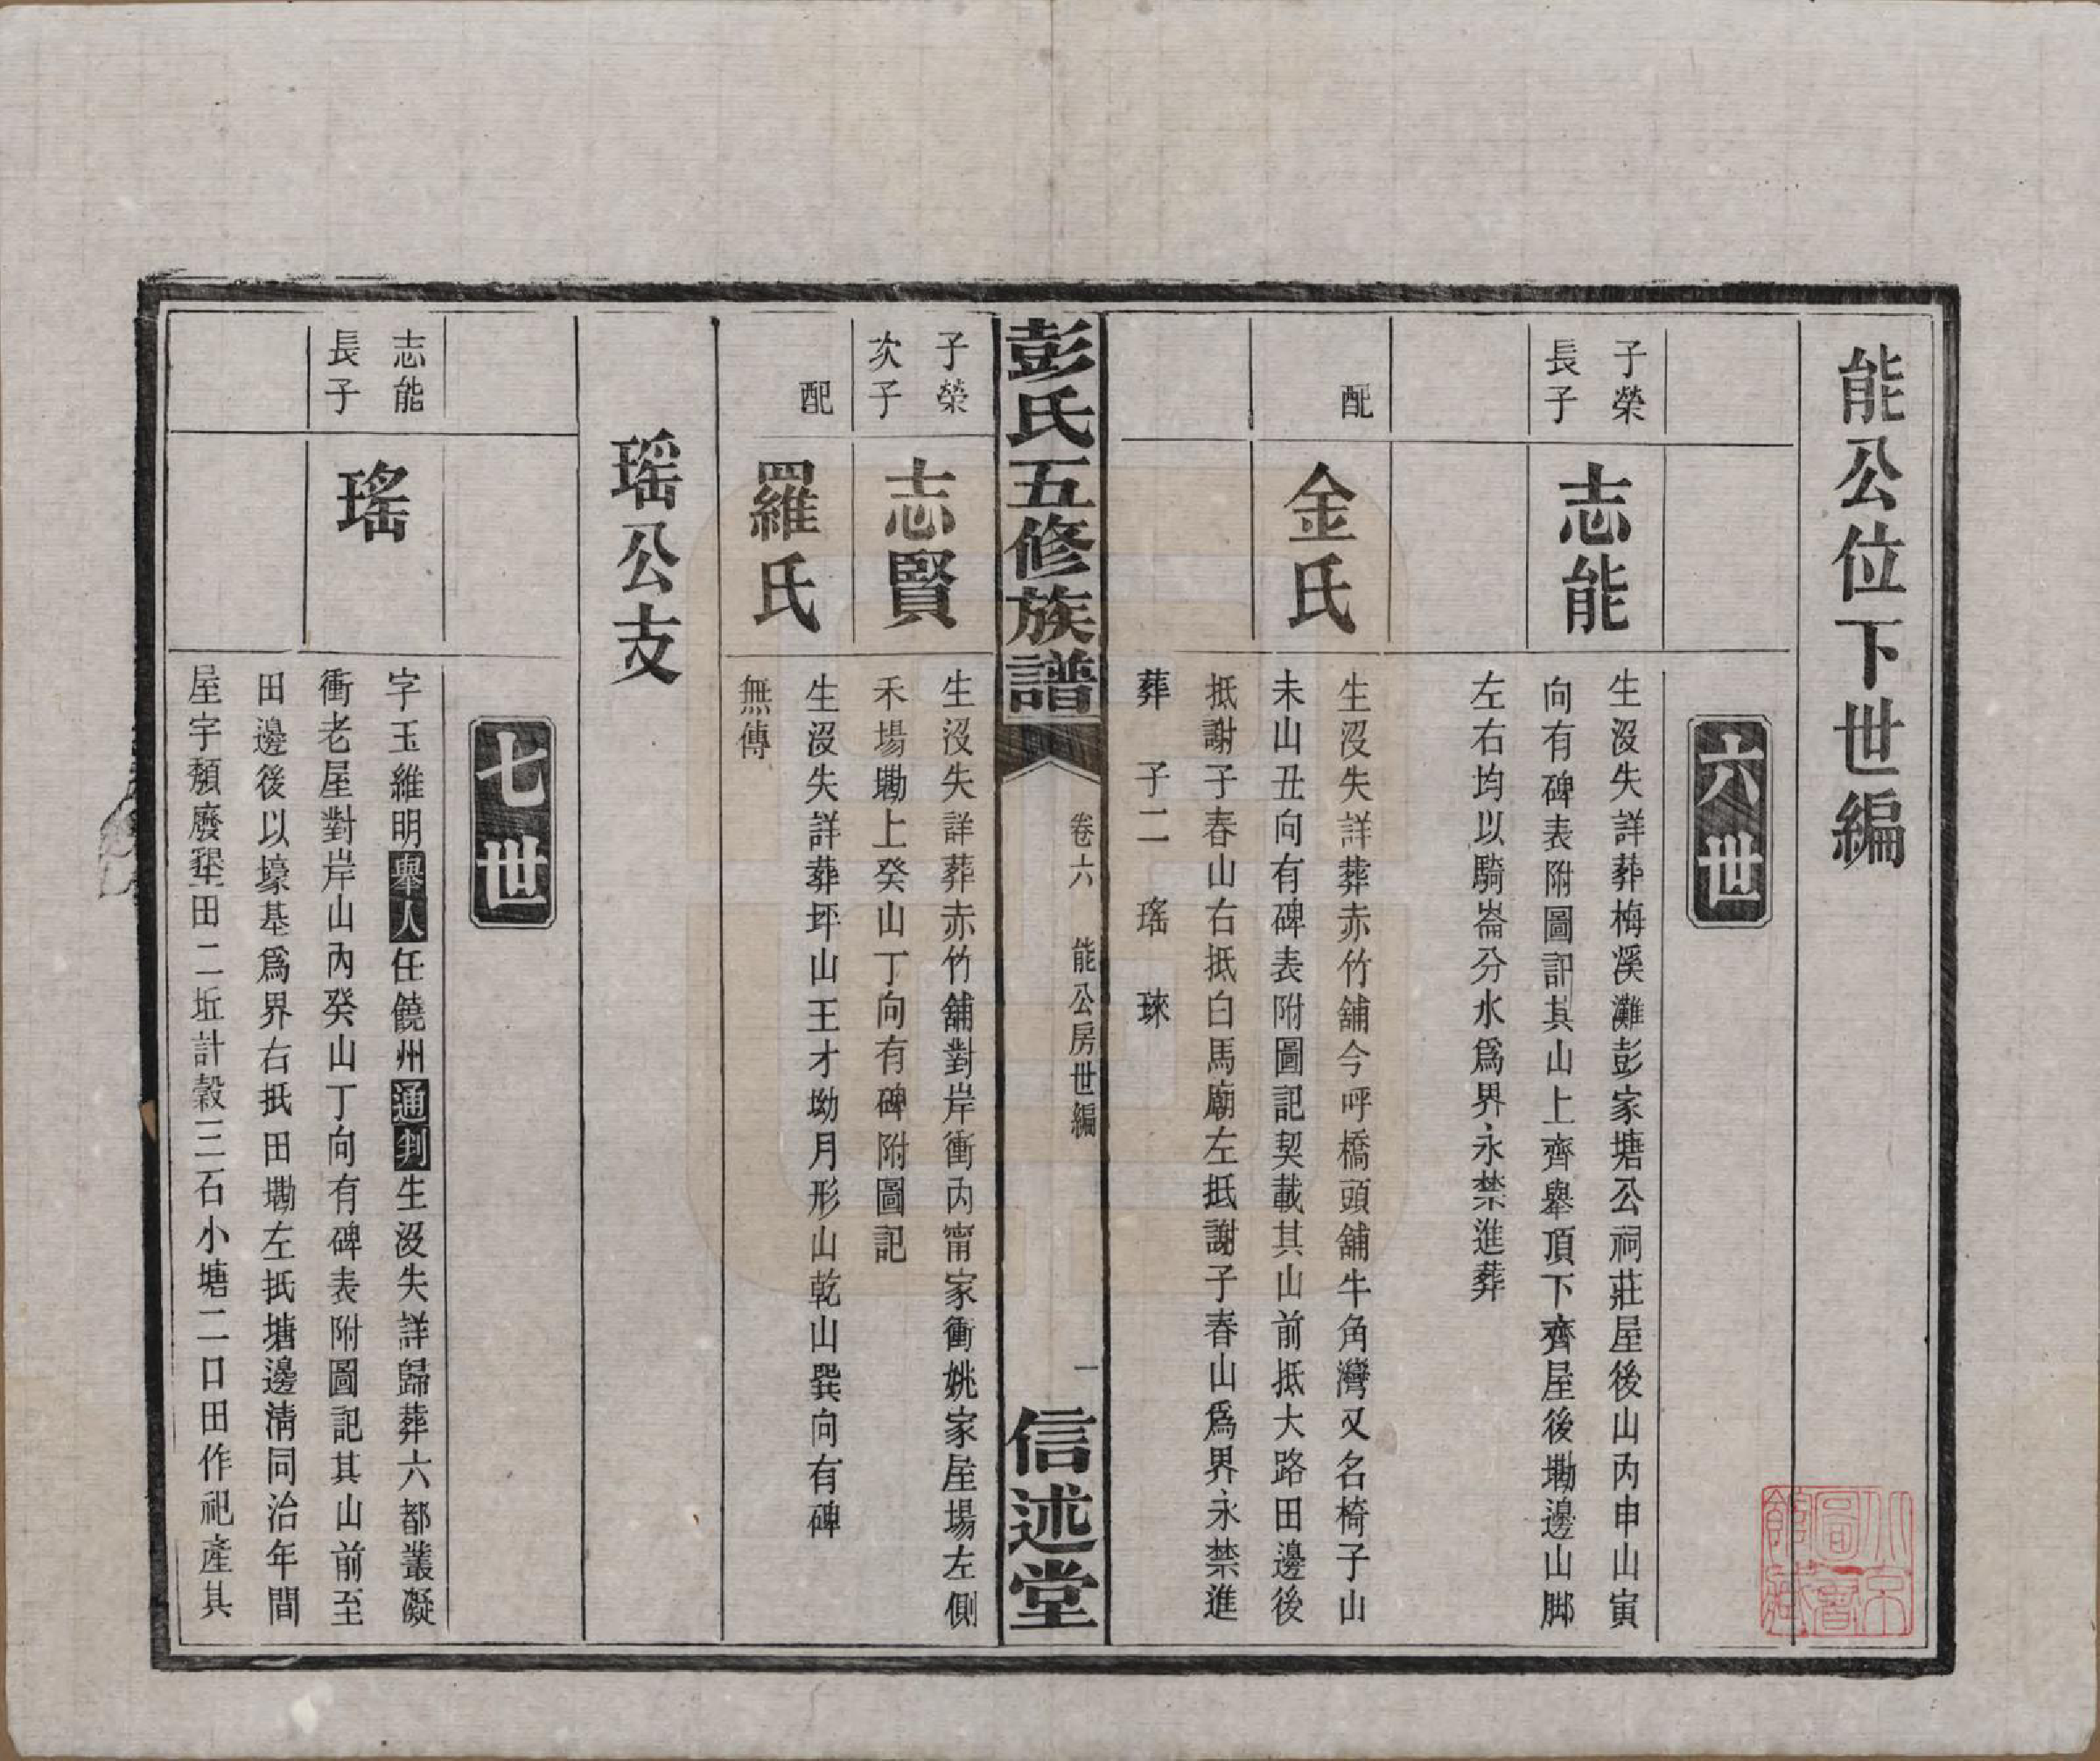 能公位下世編
六世
子榮
長子
志能
生沒失詳葬梅溪灘彭家塘公祠莊屋後山內申山寅
向有碑表附圖記其山上齊舉頂下齊屋後墈邊山脚
左右均以騎崙分水爲界永禁進葬
配
金氏
生沒失詳葬赤竹舖今呼橋頭舖牛角灣又名椅子山
未山丑向有碑表附圖記契載其山前抵大路田邊後
抵謝子春山右抵白馬廟左抵謝子春山爲界永禁進
葬 子二 瑤 琜
彭氏五修族譜
卷六 能公房世編
一
信述堂
子榮
次子
志賢
生沒失詳葬赤竹舖對岸衝內甯家衝姚家屋場左側
禾場墈上癸山丁向有碑附圖記
配
羅氏
生沒失詳葬坪山王才坳月形山乾山巽向有碑
無傳
瑤公支
七世
志能
長子
瑤
字玉維明舉人任饒州通判生沒失詳歸葬六都叢礙
衝老屋對岸山內癸山丁向有碑表附圖記其山前至
田邊後以壕基爲界右抵田墈左抵塘邊清同治年間
屋宇頽廢墾田二坵計穀三石小塘二口田作祀產其
北京圖書館藏